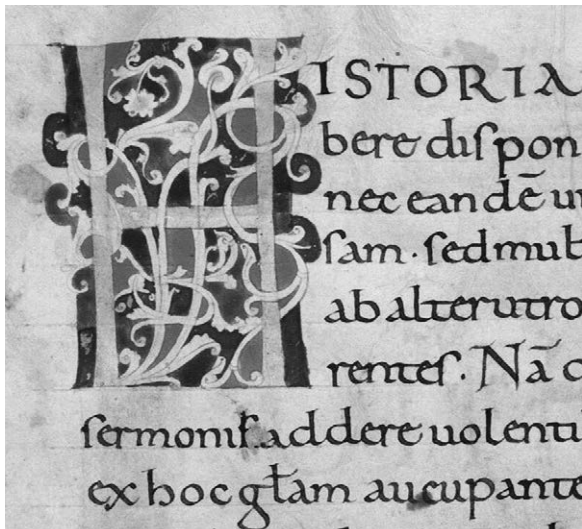 HISTORIA
bere diſpon
nec eandē un
ſam · ſed mul
ab alterutro
renteſ. Nā c
ſermoniſ addere uolenti
ex hoc głam aucupante